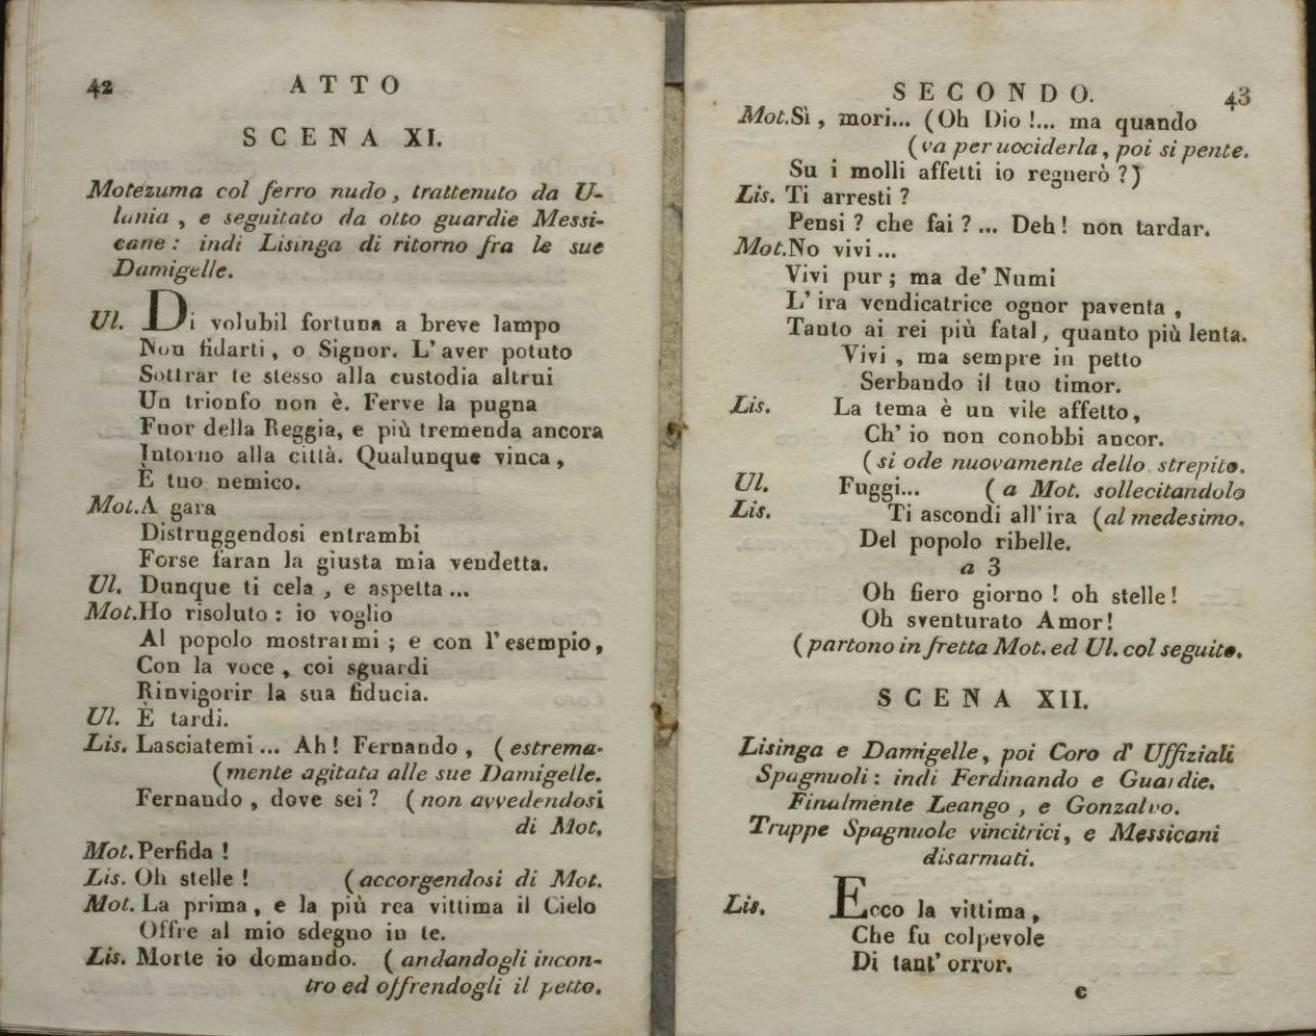 42
ATTO
SCENA XI.
Motezuma col ferro nudo, trattenuto da U-
lania, e seguitato da otto guardie Messi-
cane: indi Lisinga di ritorno fra le sue
Damigelle.
Ul. Di volubil fortuna a breve lampo
Non fidarti, o Signor. L'aver potuto
Sottrar te stesso alla custodia altrui
Un trionfo non è. Ferve la pugna
Fuor della Reggia, e più tremenda ancora
Intorno alla città. Qualunque vinca,
È tuo nemico.
Mot. A gara
Distruggendosi entrambi
Forse faran la giusta mia vendetta.
Ul. Dunque ti cela, e aspetta...
Mot. Ho risoluto: io voglio
Al popolo mostrarmi; e con l'esempio,
Con la voce, coi sguardi
Rinvigorir la sua fiducia.
Ul. È tardi.
Lis. Lasciatemi... Ah! Fernando, (estrema-
(mente agitata alle sue Damigelle.
Fernando, dove sei? (non avvedendosi
di Mot.
Mot. Perfida!
Lis. Oh stelle! (accorgendosi di Mot.
Mot. La prima, e la più rea vittima il Cielo
Offre al mio sdegno in te.
Lis. Morte io domando. (andandogli incon-
tro ed offrendogli il petto.
SECONDO.
43
Mot. Sì, mori... (Oh Dio!... ma quando
(va per uociderla, poi si pente.
Su i molli affetti io regnerò?)
Lis. Ti arresti?
Pensi? che fai?... Deh! non tardar.
Mot. No vivi...
Vivi pur; ma de' Numi
L'ira vendicatrice ognor paventa,
Tanto ai rei più fatal, quanto più lenta.
Vivi, ma sempre in petto
Serbando il tuo timor.
Lis. La tema è un vile affetto,
Ch'io non conobbi ancor.
(si ode nuovamente dello strepito.
Ul. Fuggi... (a Mot. sollecitandolo
Lis. Ti ascondi all'ira (al medesimo.
Del popolo ribelle.
a 3
Oh fiero giorno! oh stelle!
Oh sventurato Amor!
(partono in fretta Mot. ed Ul. col seguito.
SCENA XII.
Lisinga e Damigelle, poi Coro d'Uffiziali
Spagnuoli: indi Ferdinando e Guardie.
Finalmente Leango, e Gonzalvo.
Truppe Spagnuole vincitrici, e Messicani
disarmati.
Lis. Ecco la vittima,
Che fu colpevole
Di tant'orror.
c